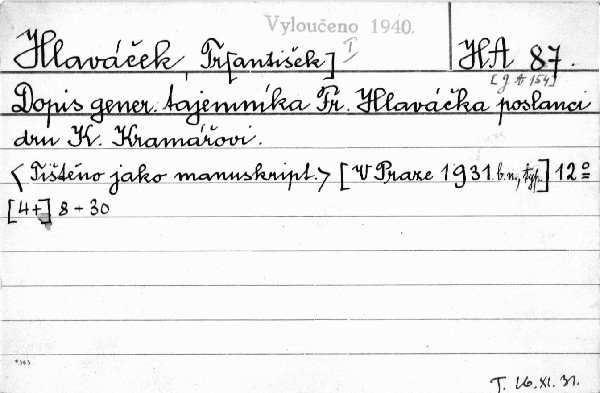 Vyloučeno 1940.
I
Hlaváček, Fr[antišek] HA 87.
[g A 154]
Dopis gener. tajemníka Fr. Hlaváčka poslanci
dru K. Kramářovi.
< Tištěno jako manuskript. > [V Praze 1931 b. n., typ.] 12°
[4+] 8 - 30
T. 16. XI. 31.